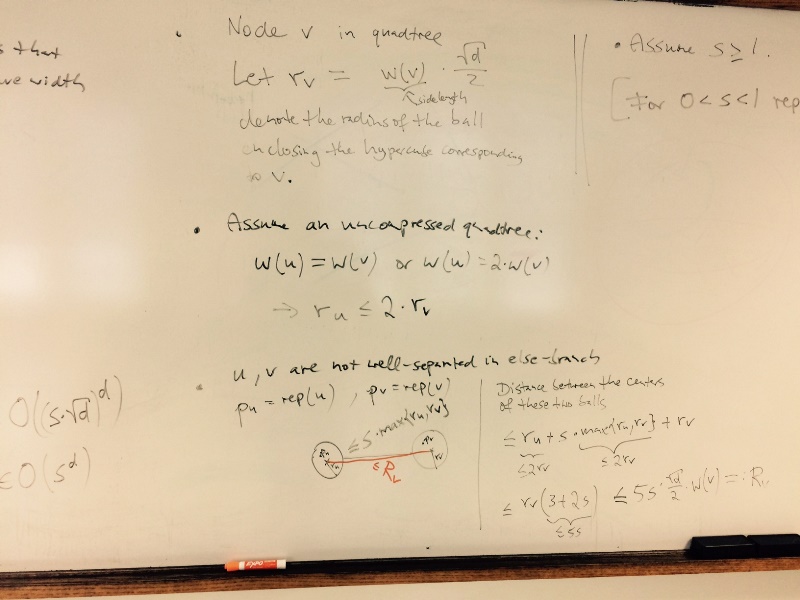 s that
ve width
• Node v in quadtree
Let r_v = w(v) · √d/2
↖ sidelength
denote the radius of the ball
enclosing the hypercube corresponding
to v.
• Assume an uncompressed quadtree:
w(u) = w(v) or w(u) = 2·w(v)
→ r_u ≤ 2·r_v
• u, v are not well-separated in else-branch
p_u = rep(u) , p_v = rep(v)
≤ s·max{r_u, r_v}
p_u r_u
p_v r_v
≤ R_v
Distance between the centers
of these two balls
≤ r_u + s·max{r_u, r_v} + r_v
≤2r_v ≤2r_v
≤ r_v(3+2s) ≤ 5s·√d/2·w(v) =: R_v
≤5s
• Assume s ≥ 1.
[For 0 < s < 1 rep
O((s·√d)^d)
∈ O(s^d)
EXPO